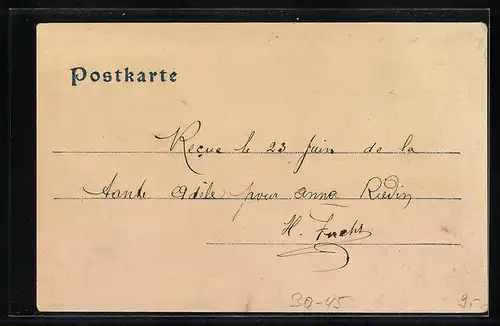 Postkarte
Reçue le 23 Juin de la
tante Adile pour Anna Riedin
H. Fuchs
30-45 9.-